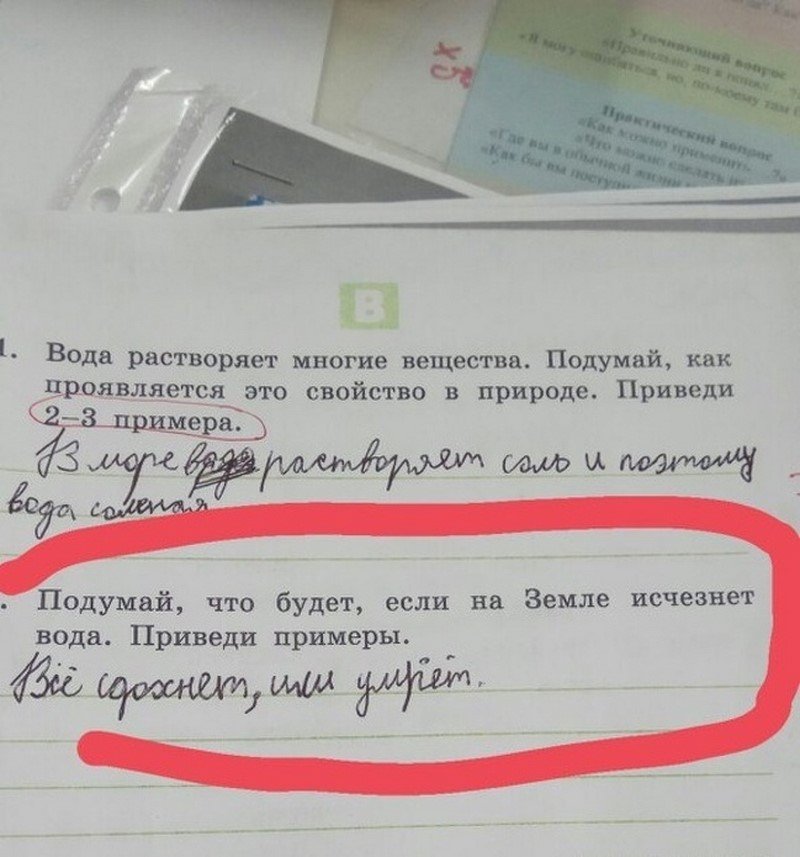 Уточняющий вопрос
«Правильно ли я понял
«Я могу ошибаться, но, по-моему там
Практический вопрос
«Как можно применить
«Что можно сделать
«Где вы в обычной жизни
«Как бы вы
В
1. Вода растворяет многие вещества. Подумай, как
проявляется это свойство в природе. Приведи
2–3 примера.
В море растворяет соль и поэтому
вода соленая
. Подумай, что будет, если на Земле исчезнет
вода. Приведи примеры.
Всё сдохнет, или умрёт.